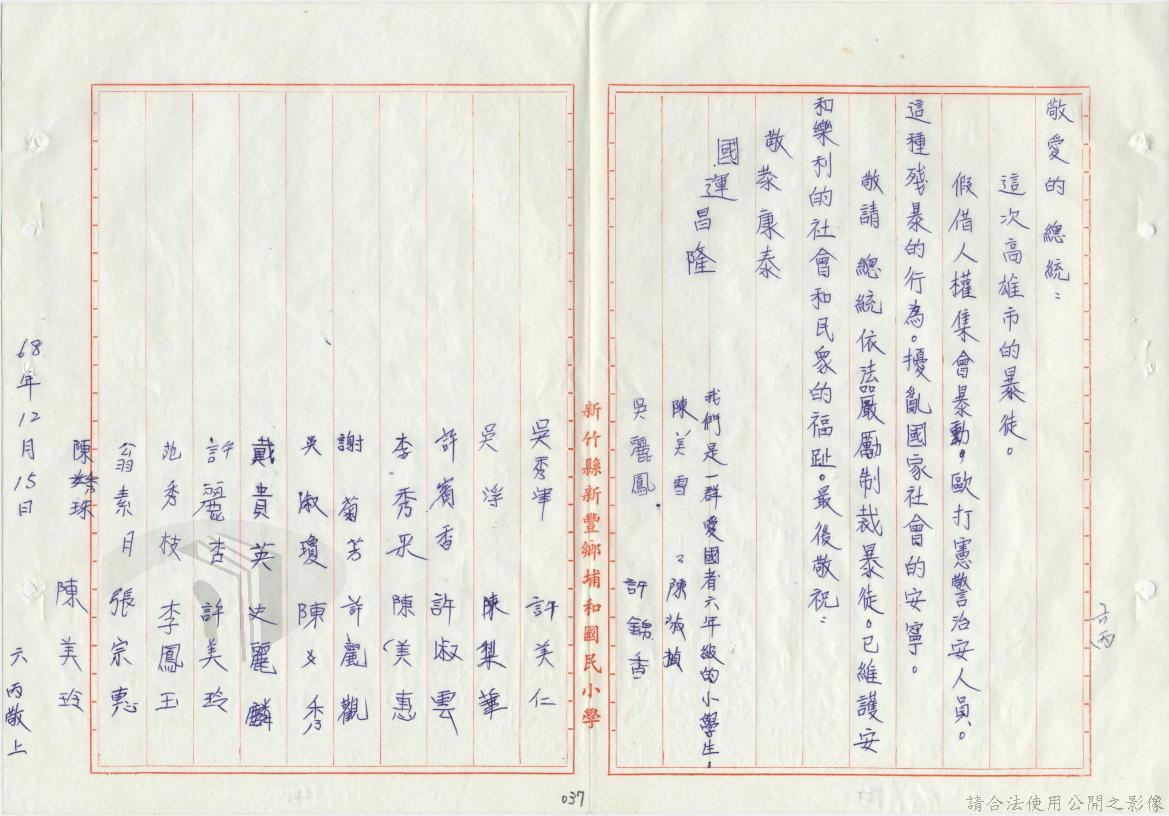 敬愛的 總統：
這次高雄市的暴徒。
假借人權集會暴動，歐打憲警治安人員。
這種殘暴的行為。擾亂國家社會的安寧。
敬請 總統依法嚴勵制裁暴徒。已維護安
和樂利的社會和民衆的福趾。最後敬祝：
敬恭康泰
國運昌隆
我們是一群愛國者六年級的小學生。
陳美雪 陳淑
吳麗鳳 許錦香
六丙
新竹縣新豐鄉埔和國民小學
吳秀 許美仁
吳 陳梨華
許賓香 許淑雲
李秀 陳美惠
謝菊芳 許麗觀
吳淑瓊 陳 秀
戴貴英 史麗麟
許麗杏 許美玲
范秀枝 李鳳玉
翁素月 張宗惠
陳秀珠 陳美玲
68年12月15日 六丙敬上
037
請合法使用公開之影像